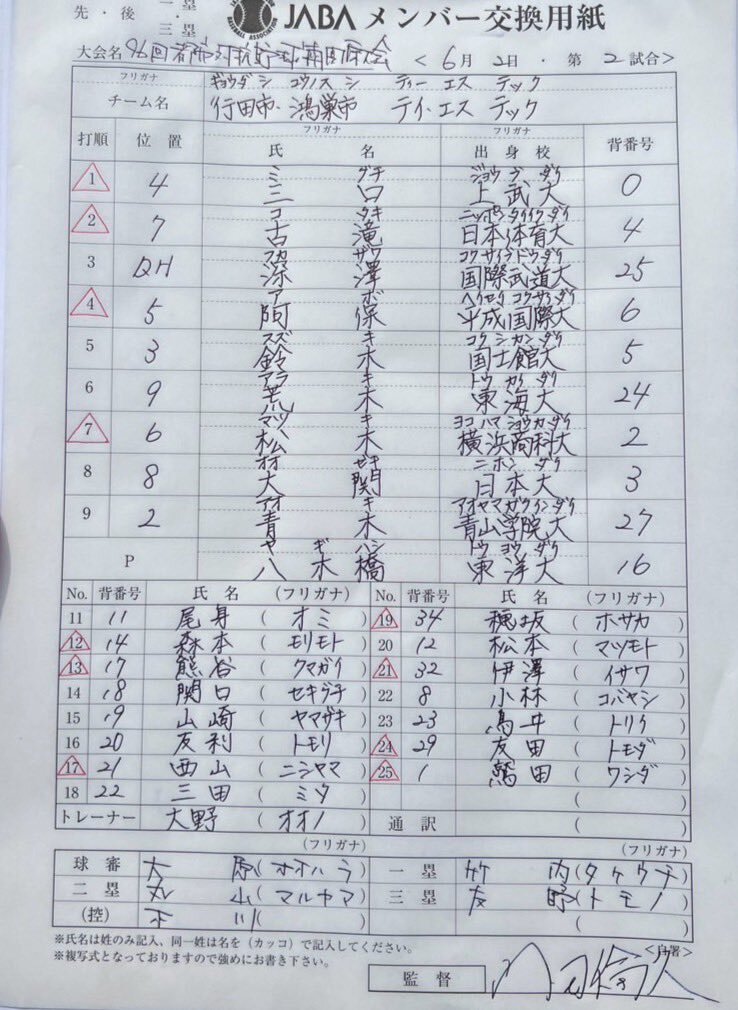 先・後
三塁
JABA メンバー交換用紙
BASEBALL ASSOCIATION
大会名 96回 < 6月2日・第2試合>
フリガナ ギョウダシ コウノスシ ティーエステック
チーム名 行田市・鴻巣市 ティ・エステック
打順 位置 フリガナ 氏名 フリガナ 出身校 背番号
ミ グチ ジョウブダイ
1 4 三口 上武大 0
コ タキ ニッポンタイイクダイ
2 7 古滝 日本体育大 4
フカ ザワ コクサイブドウダイ
3 DH 深澤 国際武道大 25
ア ボ ヘイセイコクサイダイ
4 5 阿保 平成国際大 6
スズ キ コクシカンダイ
5 3 鈴木 国士館大 5
アラ キ トウカイダイ
6 9 荒木 東海大 24
マツ キ ヨコハマショウカダイ
7 6 松木 横浜商科大 2
オオ ゼキ ニホンダイ
8 8 大関 日本大 3
アオ キ アオヤマガクインダイ
9 2 青木 青山学院大 27
ヤ ギ ハシ トウヨウダイ
P 八木橋 東洋大 16
No. 背番号 氏名 (フリガナ)
11 11 尾身 (オミ)
12 14 森本 (モリモト)
13 17 熊谷 (クマガイ)
14 18 関口 (セキグチ)
15 19 山崎 (ヤマザキ)
16 20 友利 (トモリ)
17 21 西山 (ニシヤマ)
18 22 三田 (ミタ)
トレーナー 大野 (オオノ)
No. 背番号 氏名 (フリガナ)
19 34 穂坂 (ホサカ)
20 12 松本 (マツモト)
21 32 伊澤 (イサワ)
22 8 小林 (コバヤシ)
23 23 鳥井 (トリイ)
24 29 友田 (トモダ)
25 1 鷲田 (ワシダ)
( )
通訳 ( )
(フリガナ) (フリガナ)
球審 大原 (オオハラ) 一塁 竹内 (タケウチ)
二塁 丸山 (マルヤマ) 三塁 友野 (トモノ)
(控)
※氏名は姓のみ記入、同一姓は名を(カッコ)で記入してください。
※複写式となっておりますので強めにお書き下さい。
<自署>
監督